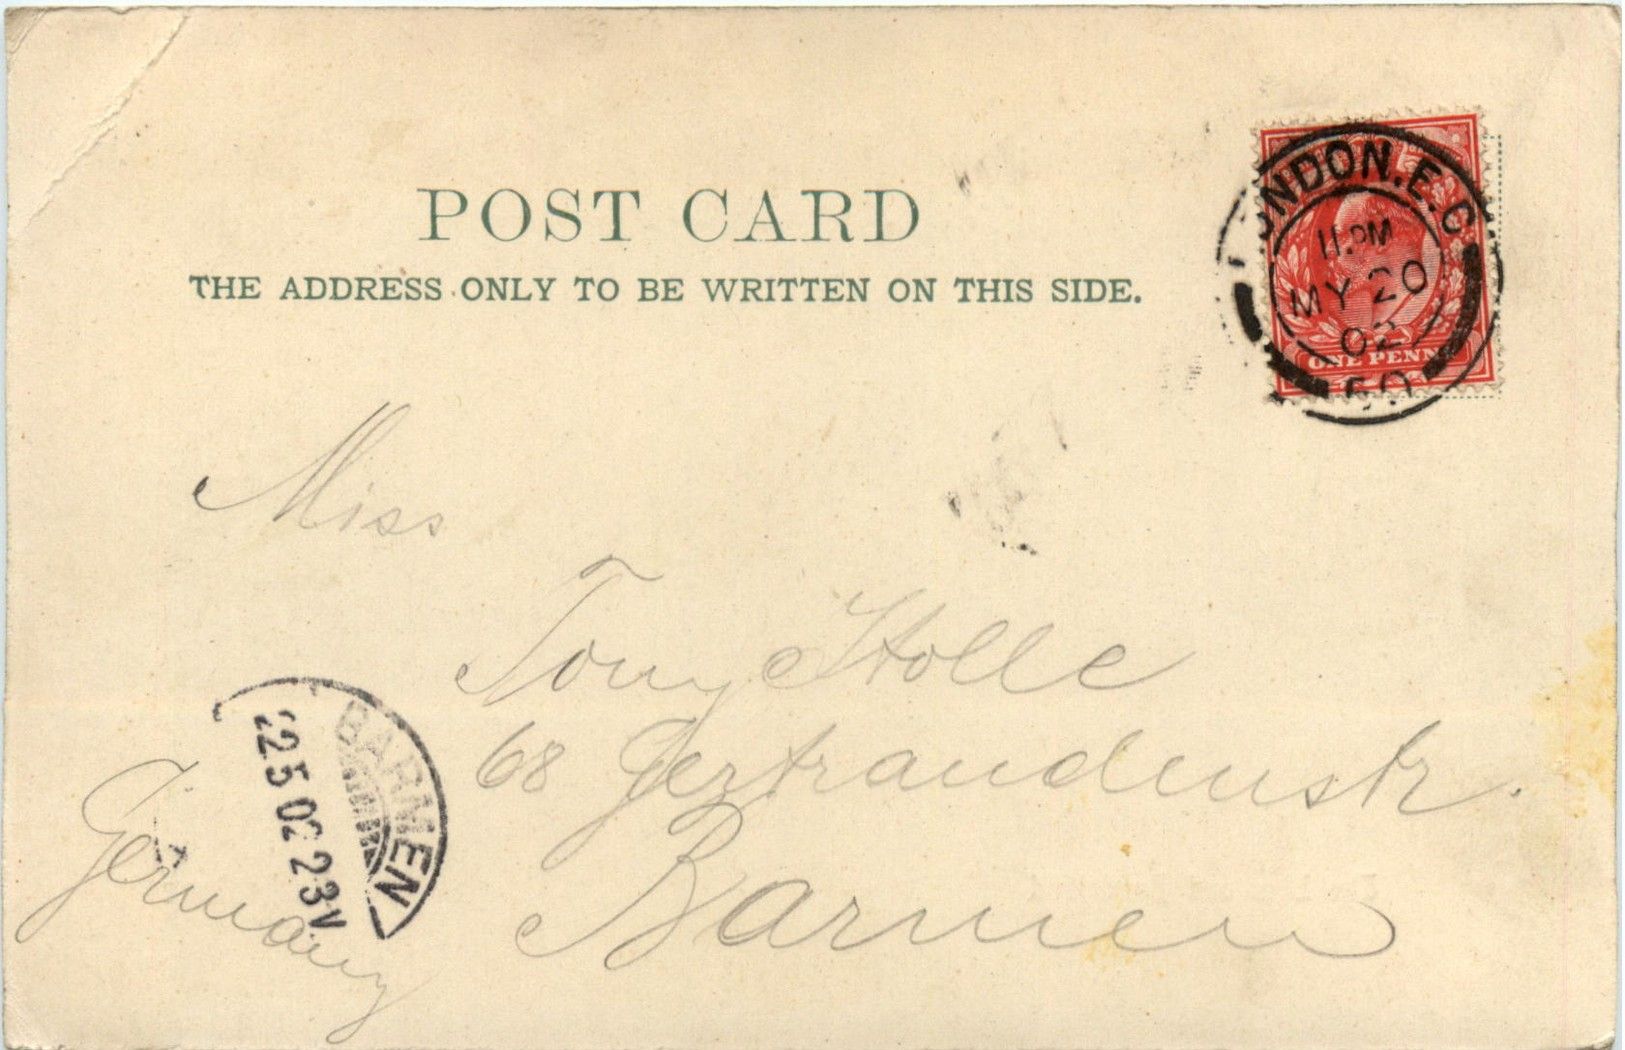 POST CARD
THE ADDRESS ONLY TO BE WRITTEN ON THIS SIDE.
LONDON. E.C.
11. PM
MY 20
02
50
ONE PENNY
Miss
Tony Stolle
68 Gertraudenstr.
Barmen
Germany
BARMEN
22 5 02 2-3V